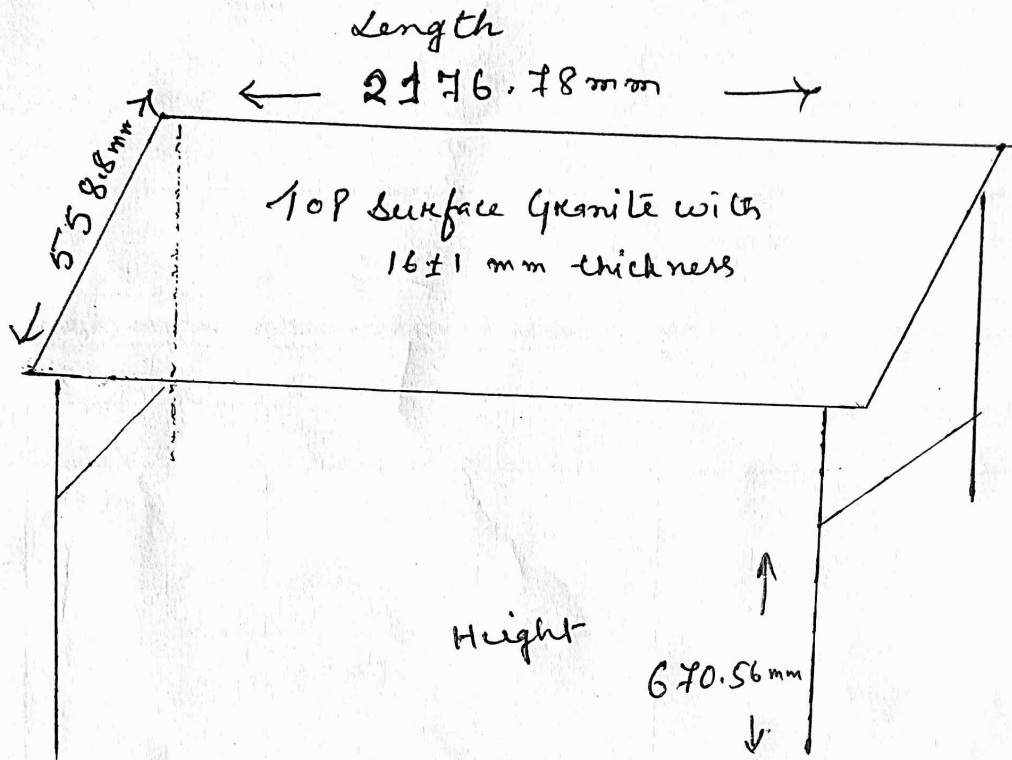 Length
2176.78mm
558.8mm
Top Surface Granite with
16±1 mm thickness
Height
670.56mm